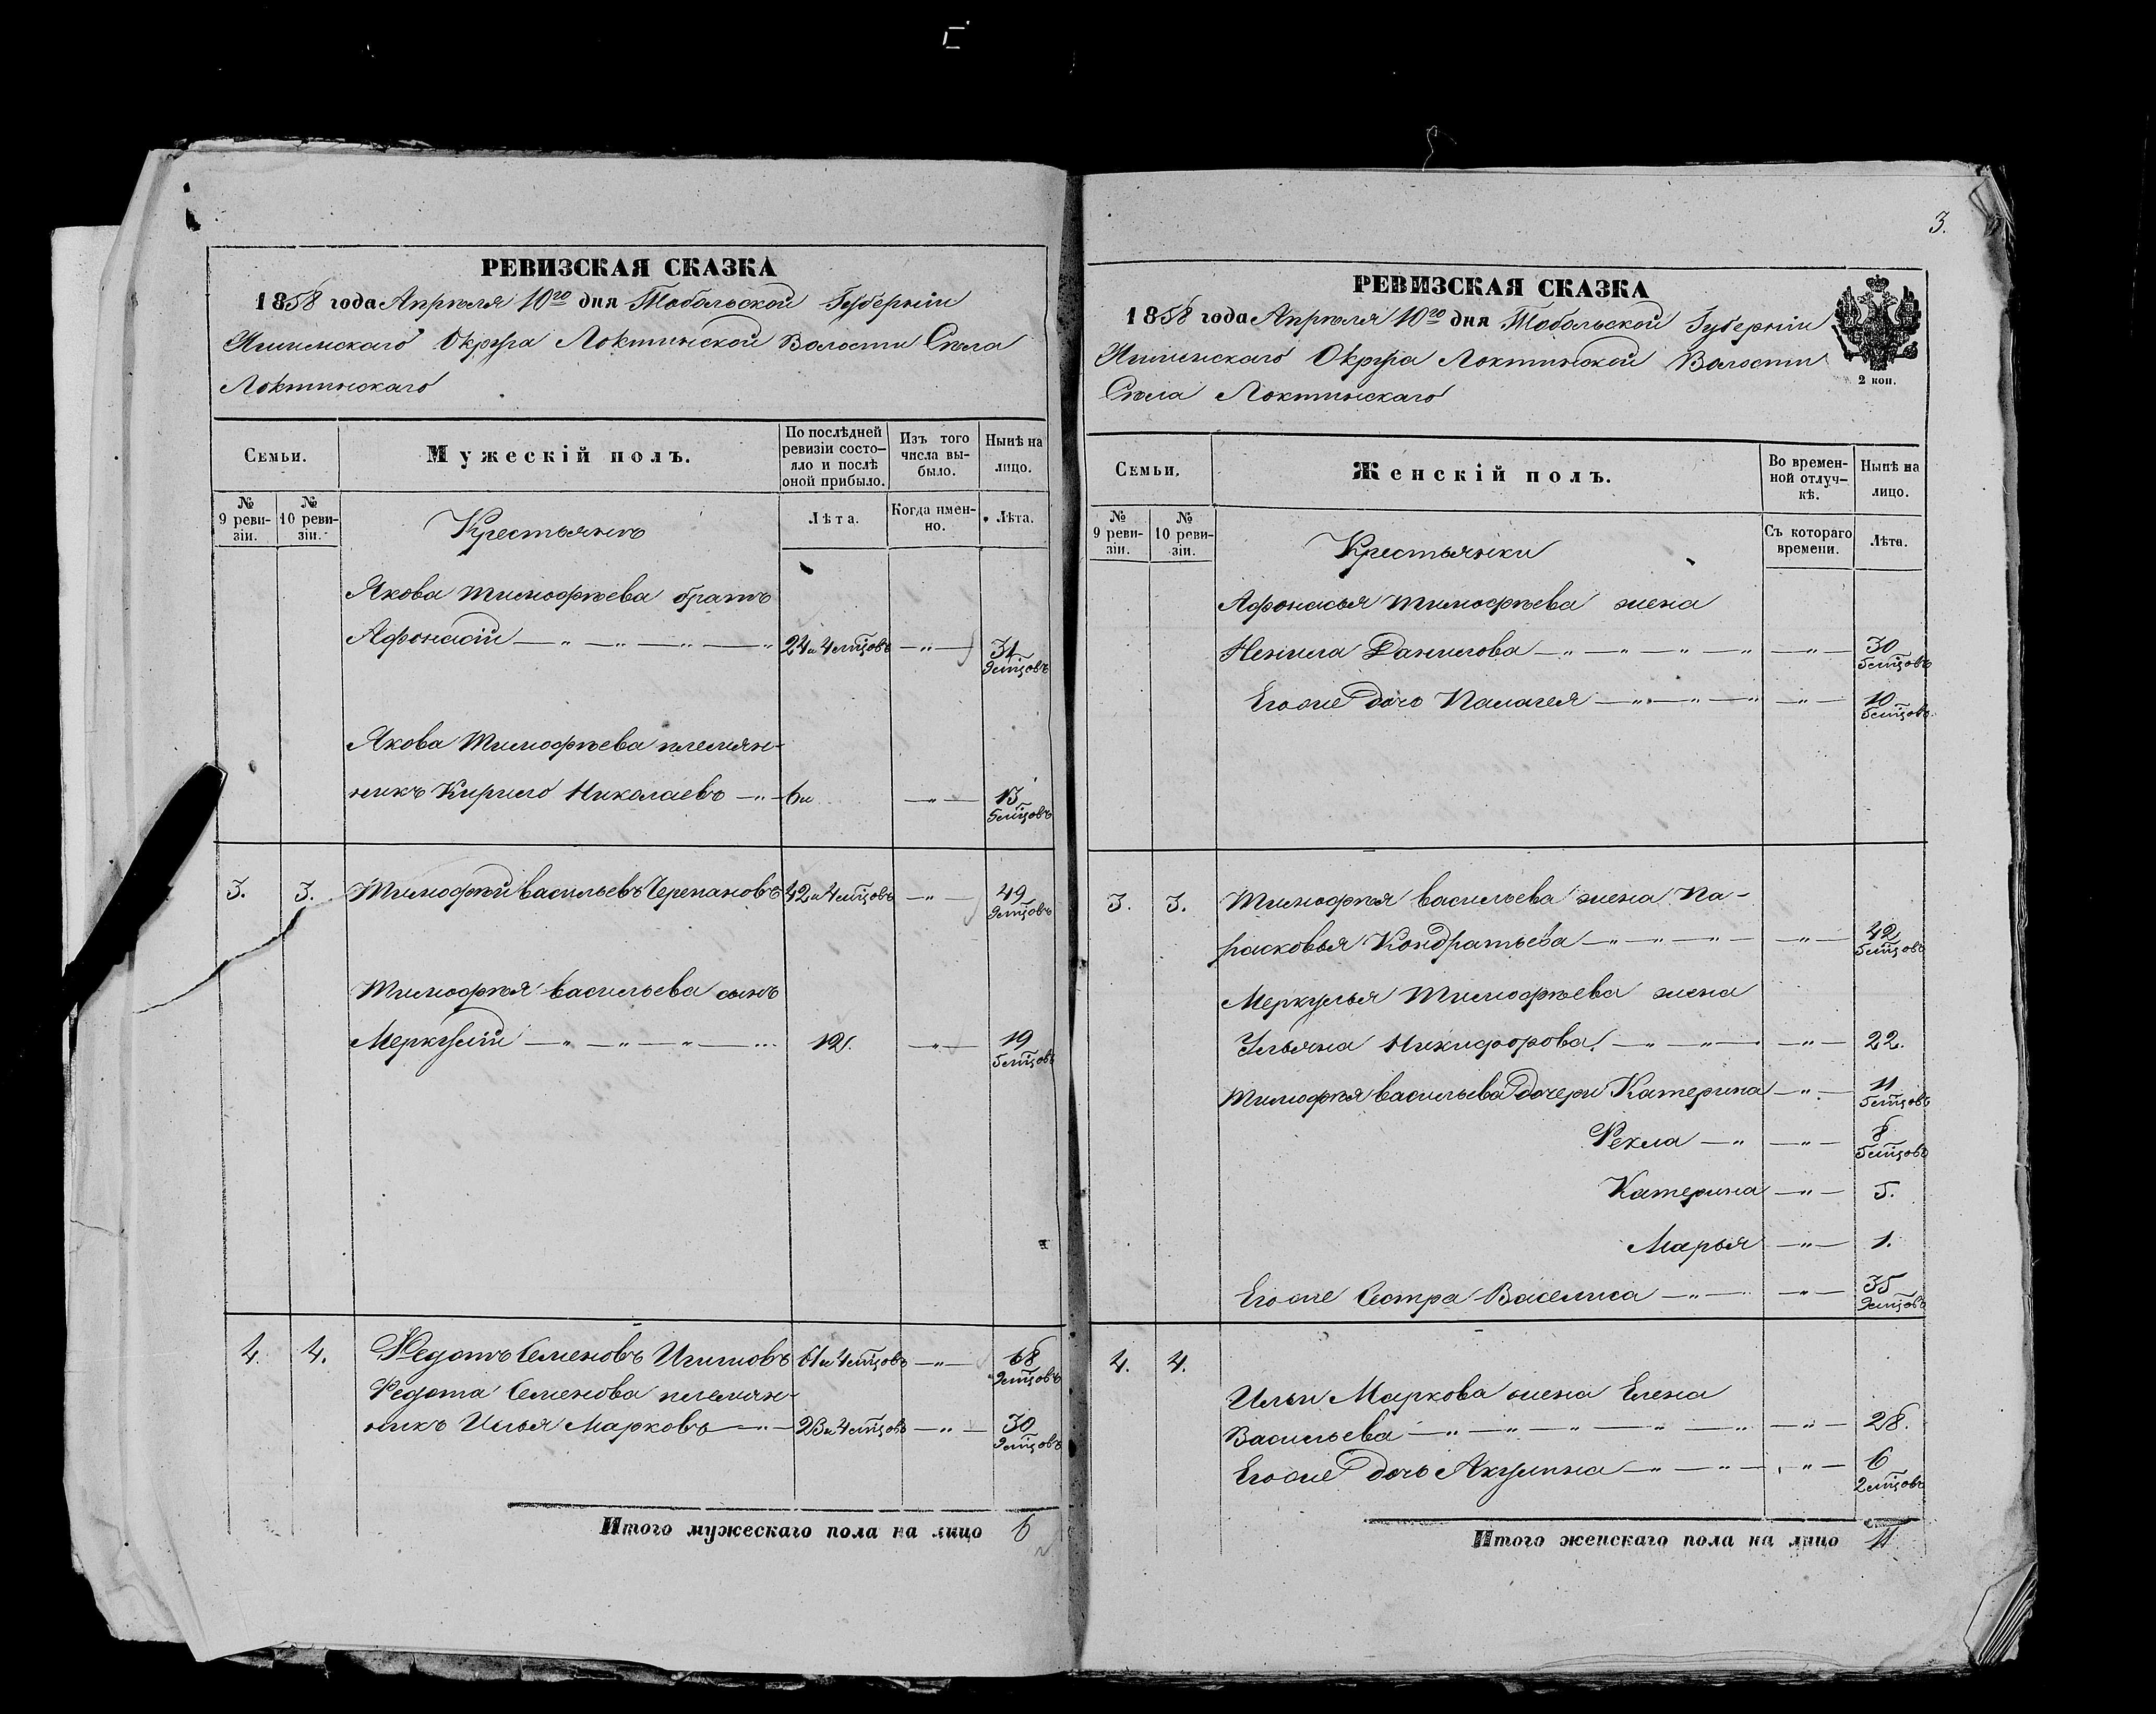 РЕВИЗСКАЯ СКАЗКА
1858 года Апрѣля 10го дня Тобольской Губерніи
Ишимскаго Округа Локтинской Волости Села
Локтинскаго
Семьи.
Мужескій полъ.
По послѣдней
ревизіи состо-
яло и послѣ
оной прибыло.
Изъ того
числа вы-
было.
Нынѣ на
лицо.
№
9 реви-
зіи.
№
10 реви-
зіи.
Крестьянъ
Лѣта.
Когда имен-
но.
Лѣта.
Якова Тимофѣева братъ
Афонасій — " — " — " — " 24 и 4 мѣсцовъ — " — 31
9 мѣсцовъ
Якова Тимофѣева племян-
никъ Кирило Николаевъ — " — 6 и — " — 13
5 мѣсцовъ
3. 3. Тимофѣй Васильевъ Черепановъ 42 и 4 мѣсцовъ — " — 49
9 мѣсцовъ
Тимофѣя Васильева сынъ
Меркулій — " — " — " — 12. — " — 19
5 мѣсцовъ
4. 4. Федотъ Семеновъ 61 и 4 мѣсцовъ — " — 68
9 мѣсцовъ
Федота Семенова племян-
никъ Илья Марковъ — " — 23 и 4 мѣсцовъ — " — 30
9 мѣсцовъ
Итого мужескаго пола на лицо 6
3.
РЕВИЗСКАЯ СКАЗКА
1858 года Апрѣля 10го дня Тобольской Губерніи
Ишимскаго Округа Локтинской Волости
Села Локтинскаго
2 коп.
Семьи.
Женскій полъ.
Во времен-
ной отлуч-
кѣ.
Нынѣ на
лицо.
№
9 реви-
зіи.
№
10 реви-
зіи.
Крестьянки
Съ котораго
времени.
Лѣта.
Афонасья Тимофѣева жена
Ненила Данилова — " — " — " — " — " — 30
5 мѣсцовъ
Егоже дочь Палагея — " — " — " — " — 10
5 мѣсцовъ
3. 3. Тимофѣя Васильева жена Па-
расковья Кондратьева — " — " — " — — " — 42
5 мѣсцовъ
Меркулья Тимофѣева жена
Ульяна Никифорова — " — " — — " — 22.
Тимофѣя Васильева дочери Катерина — " — 11
5 мѣсцовъ
Фекла — " — " — 8
5 мѣсцовъ
Катерина — " — 5.
Марья — " — 1.
Егоже Сестра Васелиса — " — — " — 35
9 мѣсцовъ
4. 4.
Ильи Маркова жена Елена
Васильева — " — " — " — " — " — " — 28.
Егоже дочь Акулина — " — " — " — 6
2 мѣсцовъ
Итого женскаго пола на лицо 11